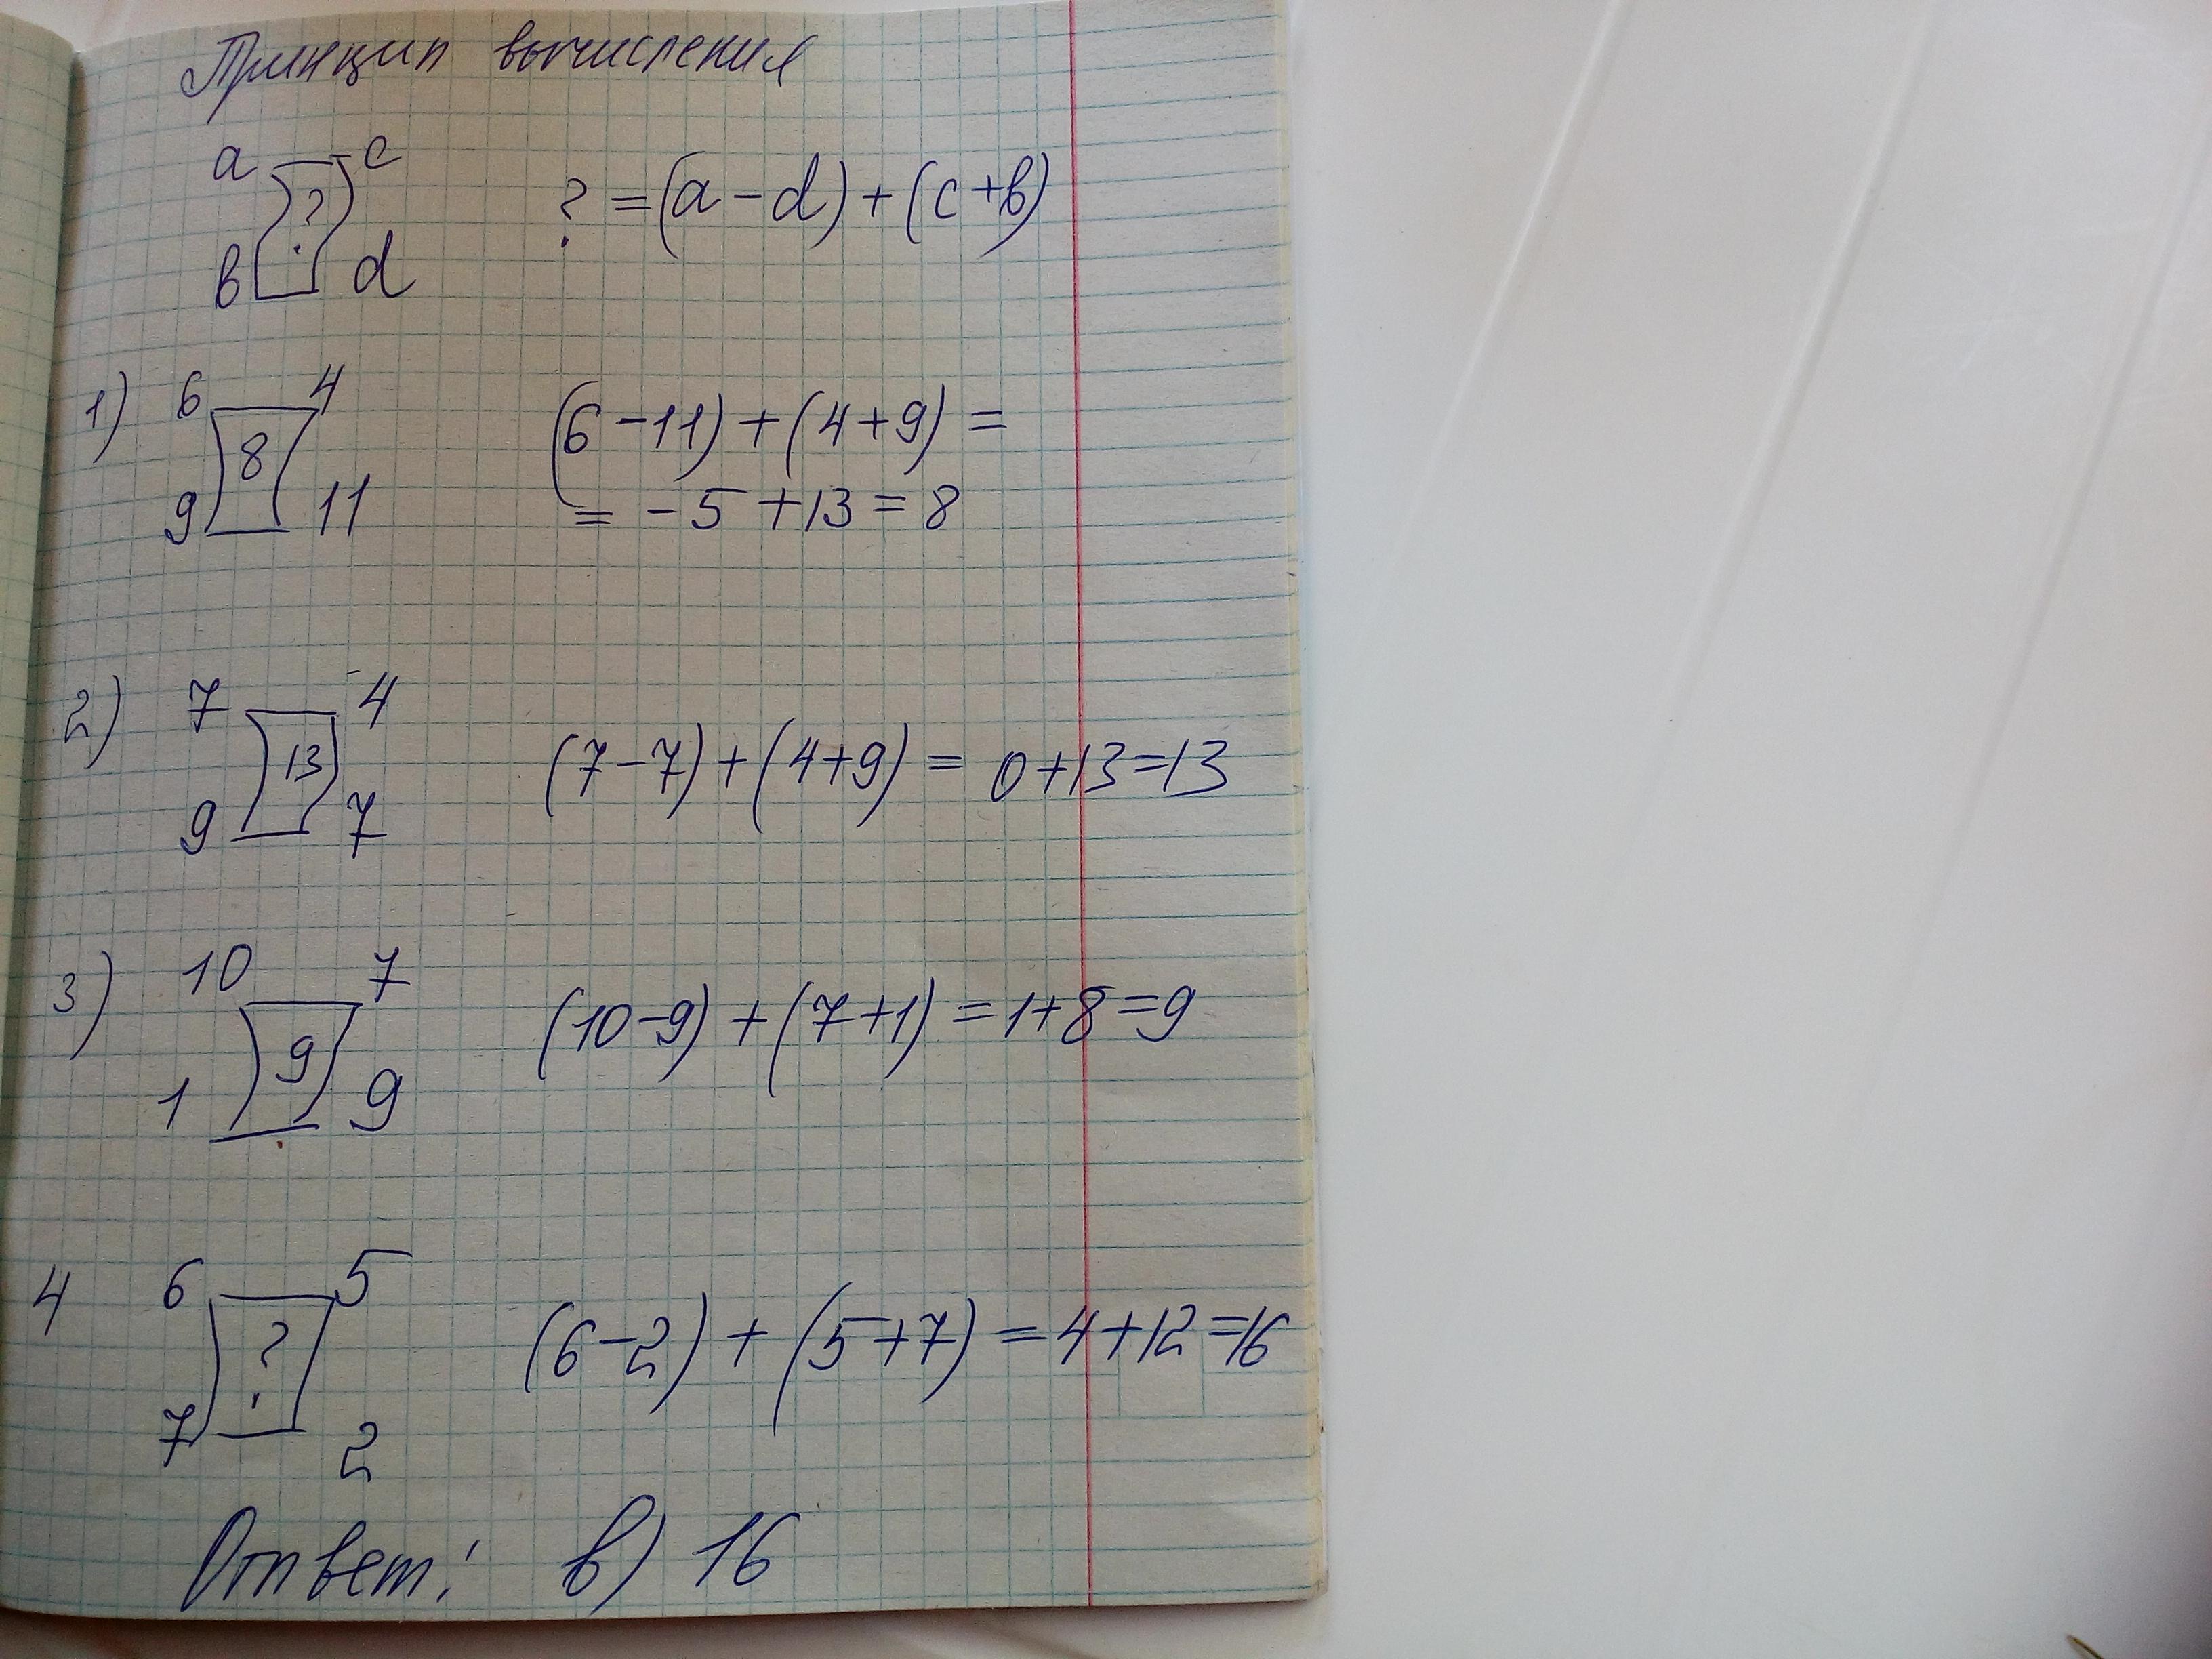 Принцип вычисления
a c
? ? = (a - d) + (c + в)
в d
1) 6 4
8 (6 - 11) + (4 + 9) =
9 11 = - 5 + 13 = 8
2) 7 4
13 (7 - 7) + (4 + 9) = 0 + 13 = 13
9 7
3) 10 7
9 (10 - 9) + (7 + 1) = 1 + 8 = 9
1 9
4 6 5
? (6 - 2) + (5 + 7) = 4 + 12 = 16
7 2
Ответ: в) 16